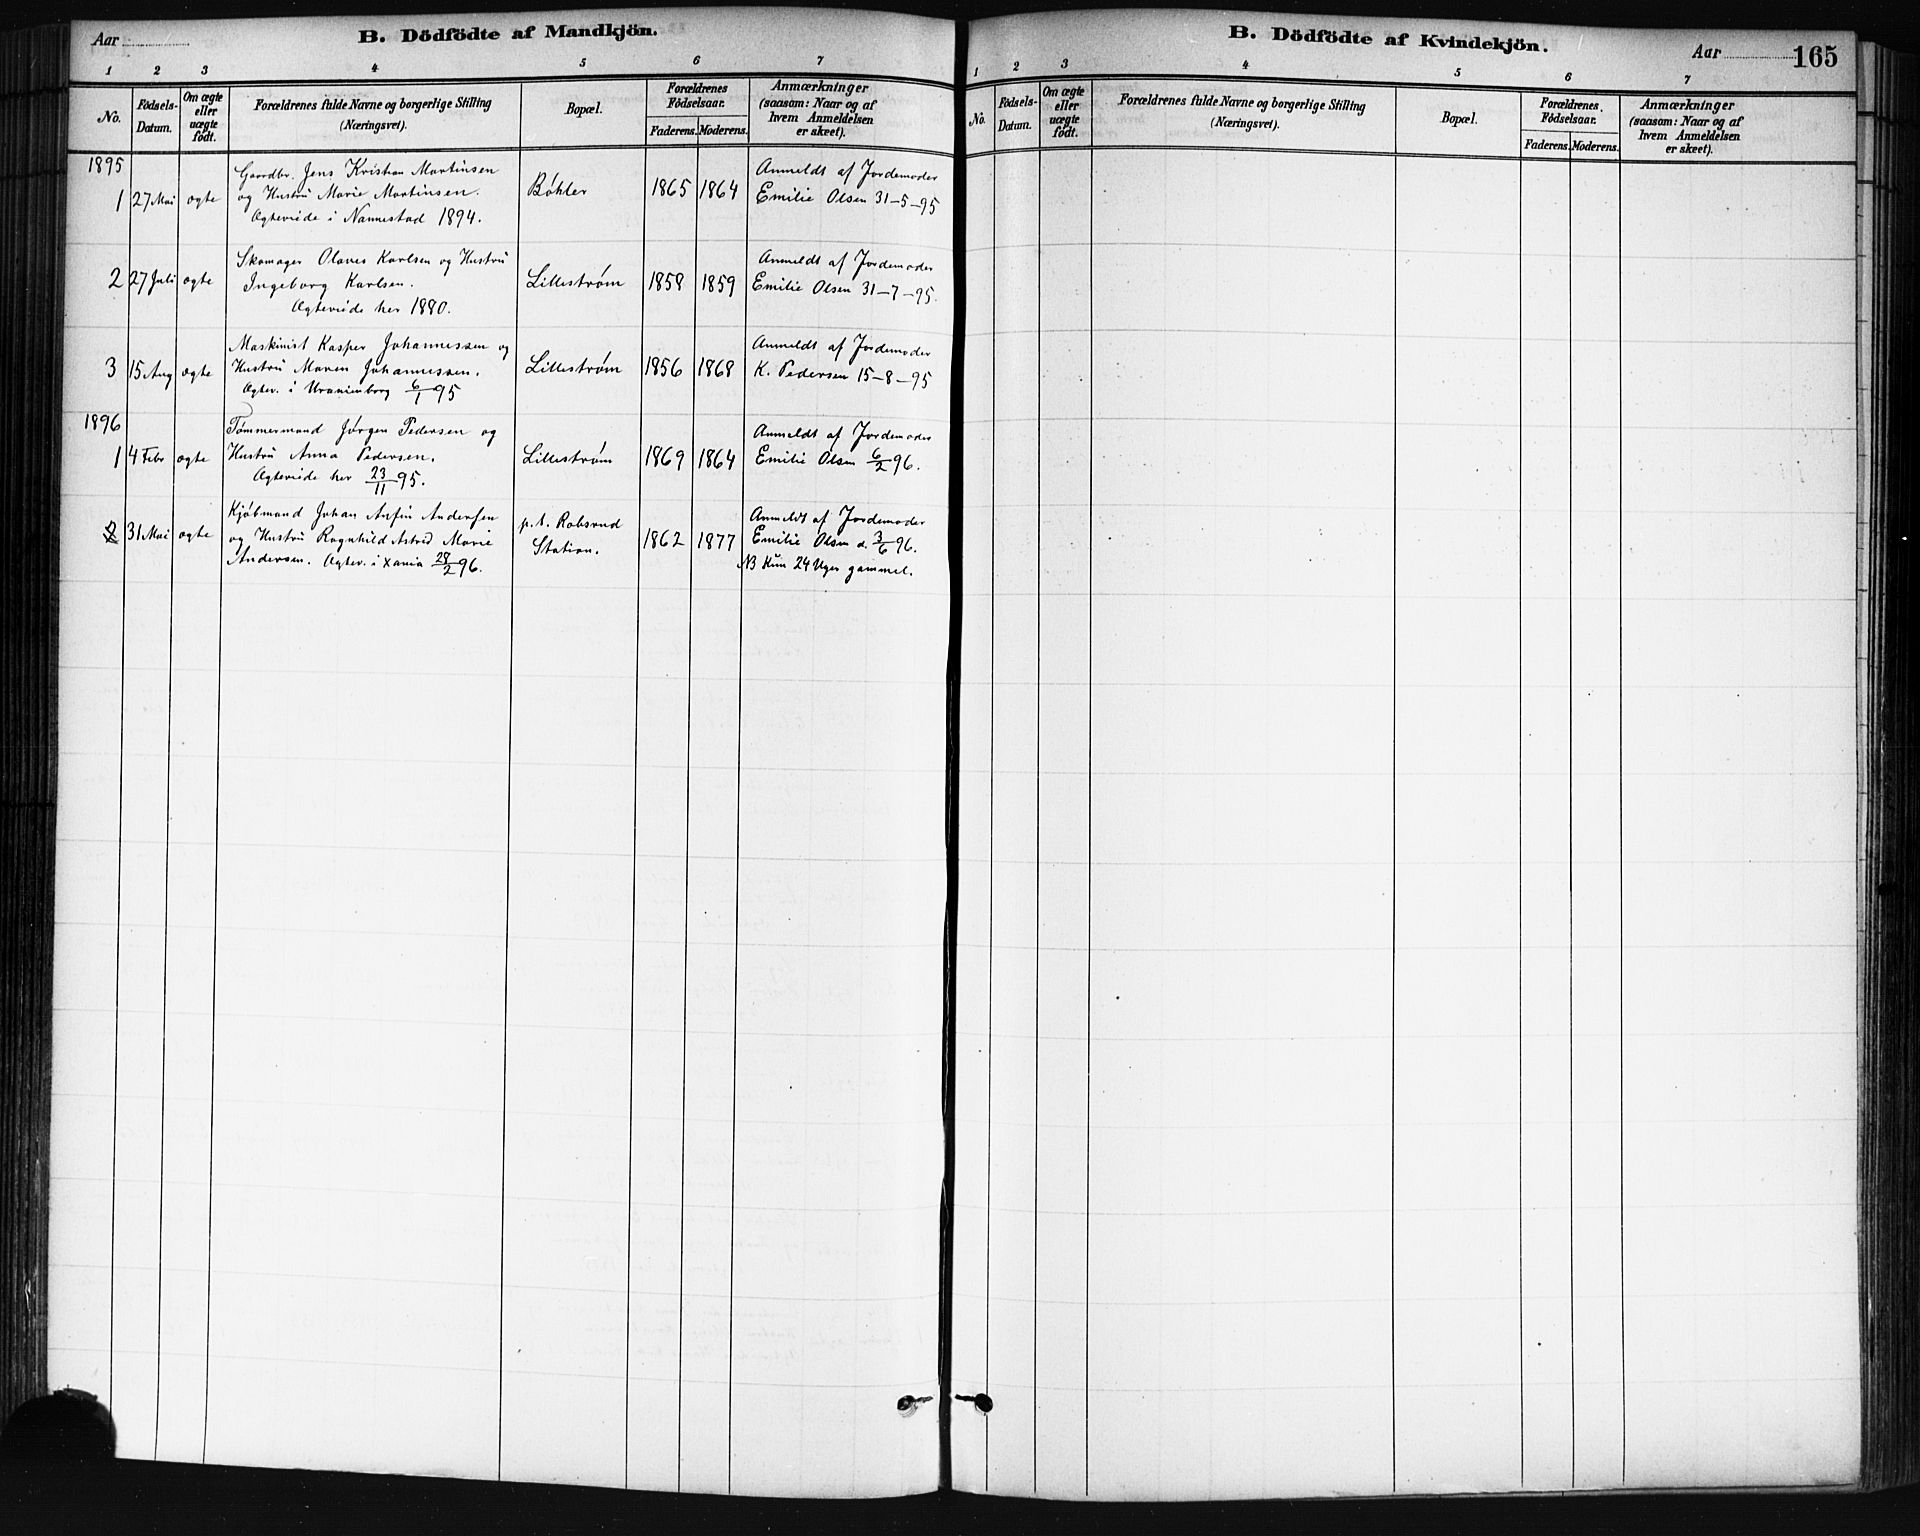 Aar
B. Dödfödte af Mandkjön.
1 2 3 4 5 6 7
No.
Födsels-
Datum.
Om ægte
eller
uægte
födt.
Forældrenes fulde Navne og borgerlige Stilling
(Næringsvei).
Bopæl.
Forældrenes
Födselsaar.
Faderens. Moderens.
Anmærkninger
(saasom: Naar og af
hvem Anmeldelsen
er skeet).
1895
1 27 Mai ægte
Gaardbr. Jens Kristian Martinsen
og Hustru Marie Martinsen.
Ægteviede i Nannestad 1894.
Bøhler
1865 1864
Anmeldt af Jordemoder
Emilie Olsen 31-5-95
2 27 Juli ægte
Skomager Olaves Karlsen og Hustru
Ingeborg Karlsen.
Ægteviede her 1880.
Lillestrøm
1858 1859
Anmeldt af Jordemoder
Emilie Olsen 31-7-95.
3 15 Aug ægte
Maskinist Kasper Johannessen og
Hustru Maren Johannessen.
Ægtev. i Uranienborg 6/1 95
Lillestrøm
1856 1868
Anmeldt af Jordemoder
K. Pedersen 15-8-95
1896
1 4 Febr ægte
Tømmermand Jørgen Pedersen og
Hustru Anna Pedersen.
Ægteviede her 23/11 95.
Lillestrøm
1869 1864
Anmeldt af Jordemoder
Emilie Olsen 6/2 96.
2 31 Mai ægte
Kjøbmand Johan Anfin Andersen
og Hustru Ragnhild Astrid Marie
Andersen. Ægtev. i Xania 28/2 96.
p.t. Robsrud
Station.
1862 1877
Anmeldt af Jordemoder
Emilie Olsen d. 3/6 96.
NB Kun 24 Uger gammel.
B. Dödfödte af Kvindekjön.
Aar 165
1 2 3 4 5 6 7
No.
Födsels-
Datum.
Om ægte
eller
uægte
födt.
Forældrenes fulde Navne og borgerlige Stilling
(Næringsvei).
Bopæl.
Forældrenes
Födselsaar.
Faderens. Moderens.
Anmærkninger
(saasom: Naar og af
hvem Anmeldelsen
er skeet).